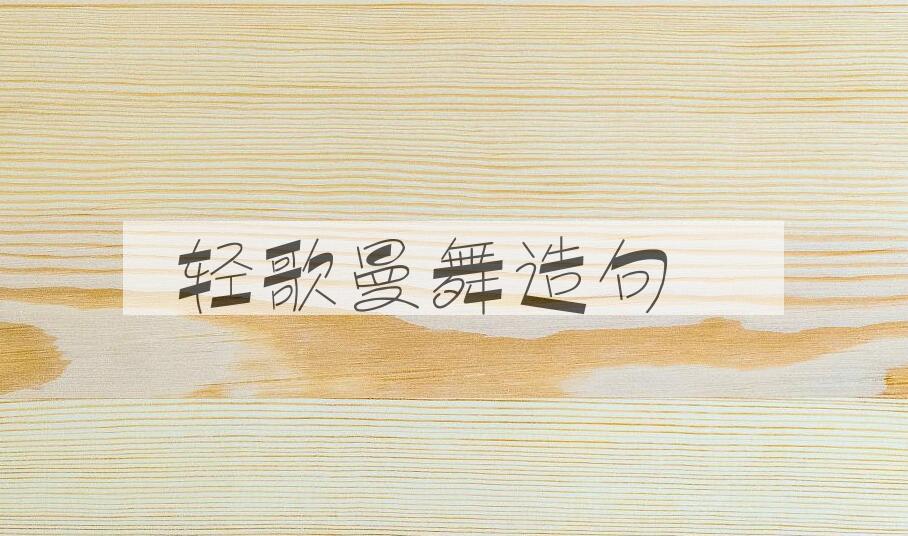 轻歌曼舞造句